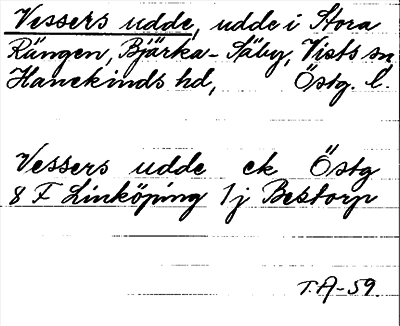 Vessers udde, udde i Stora
Rängen, Bjärka-Säby, Vists sn,
Hanekinds hd, Östg. l.
Vessers udde ek Östg
8 F Linköping 1j Bestorp
T.A-59.